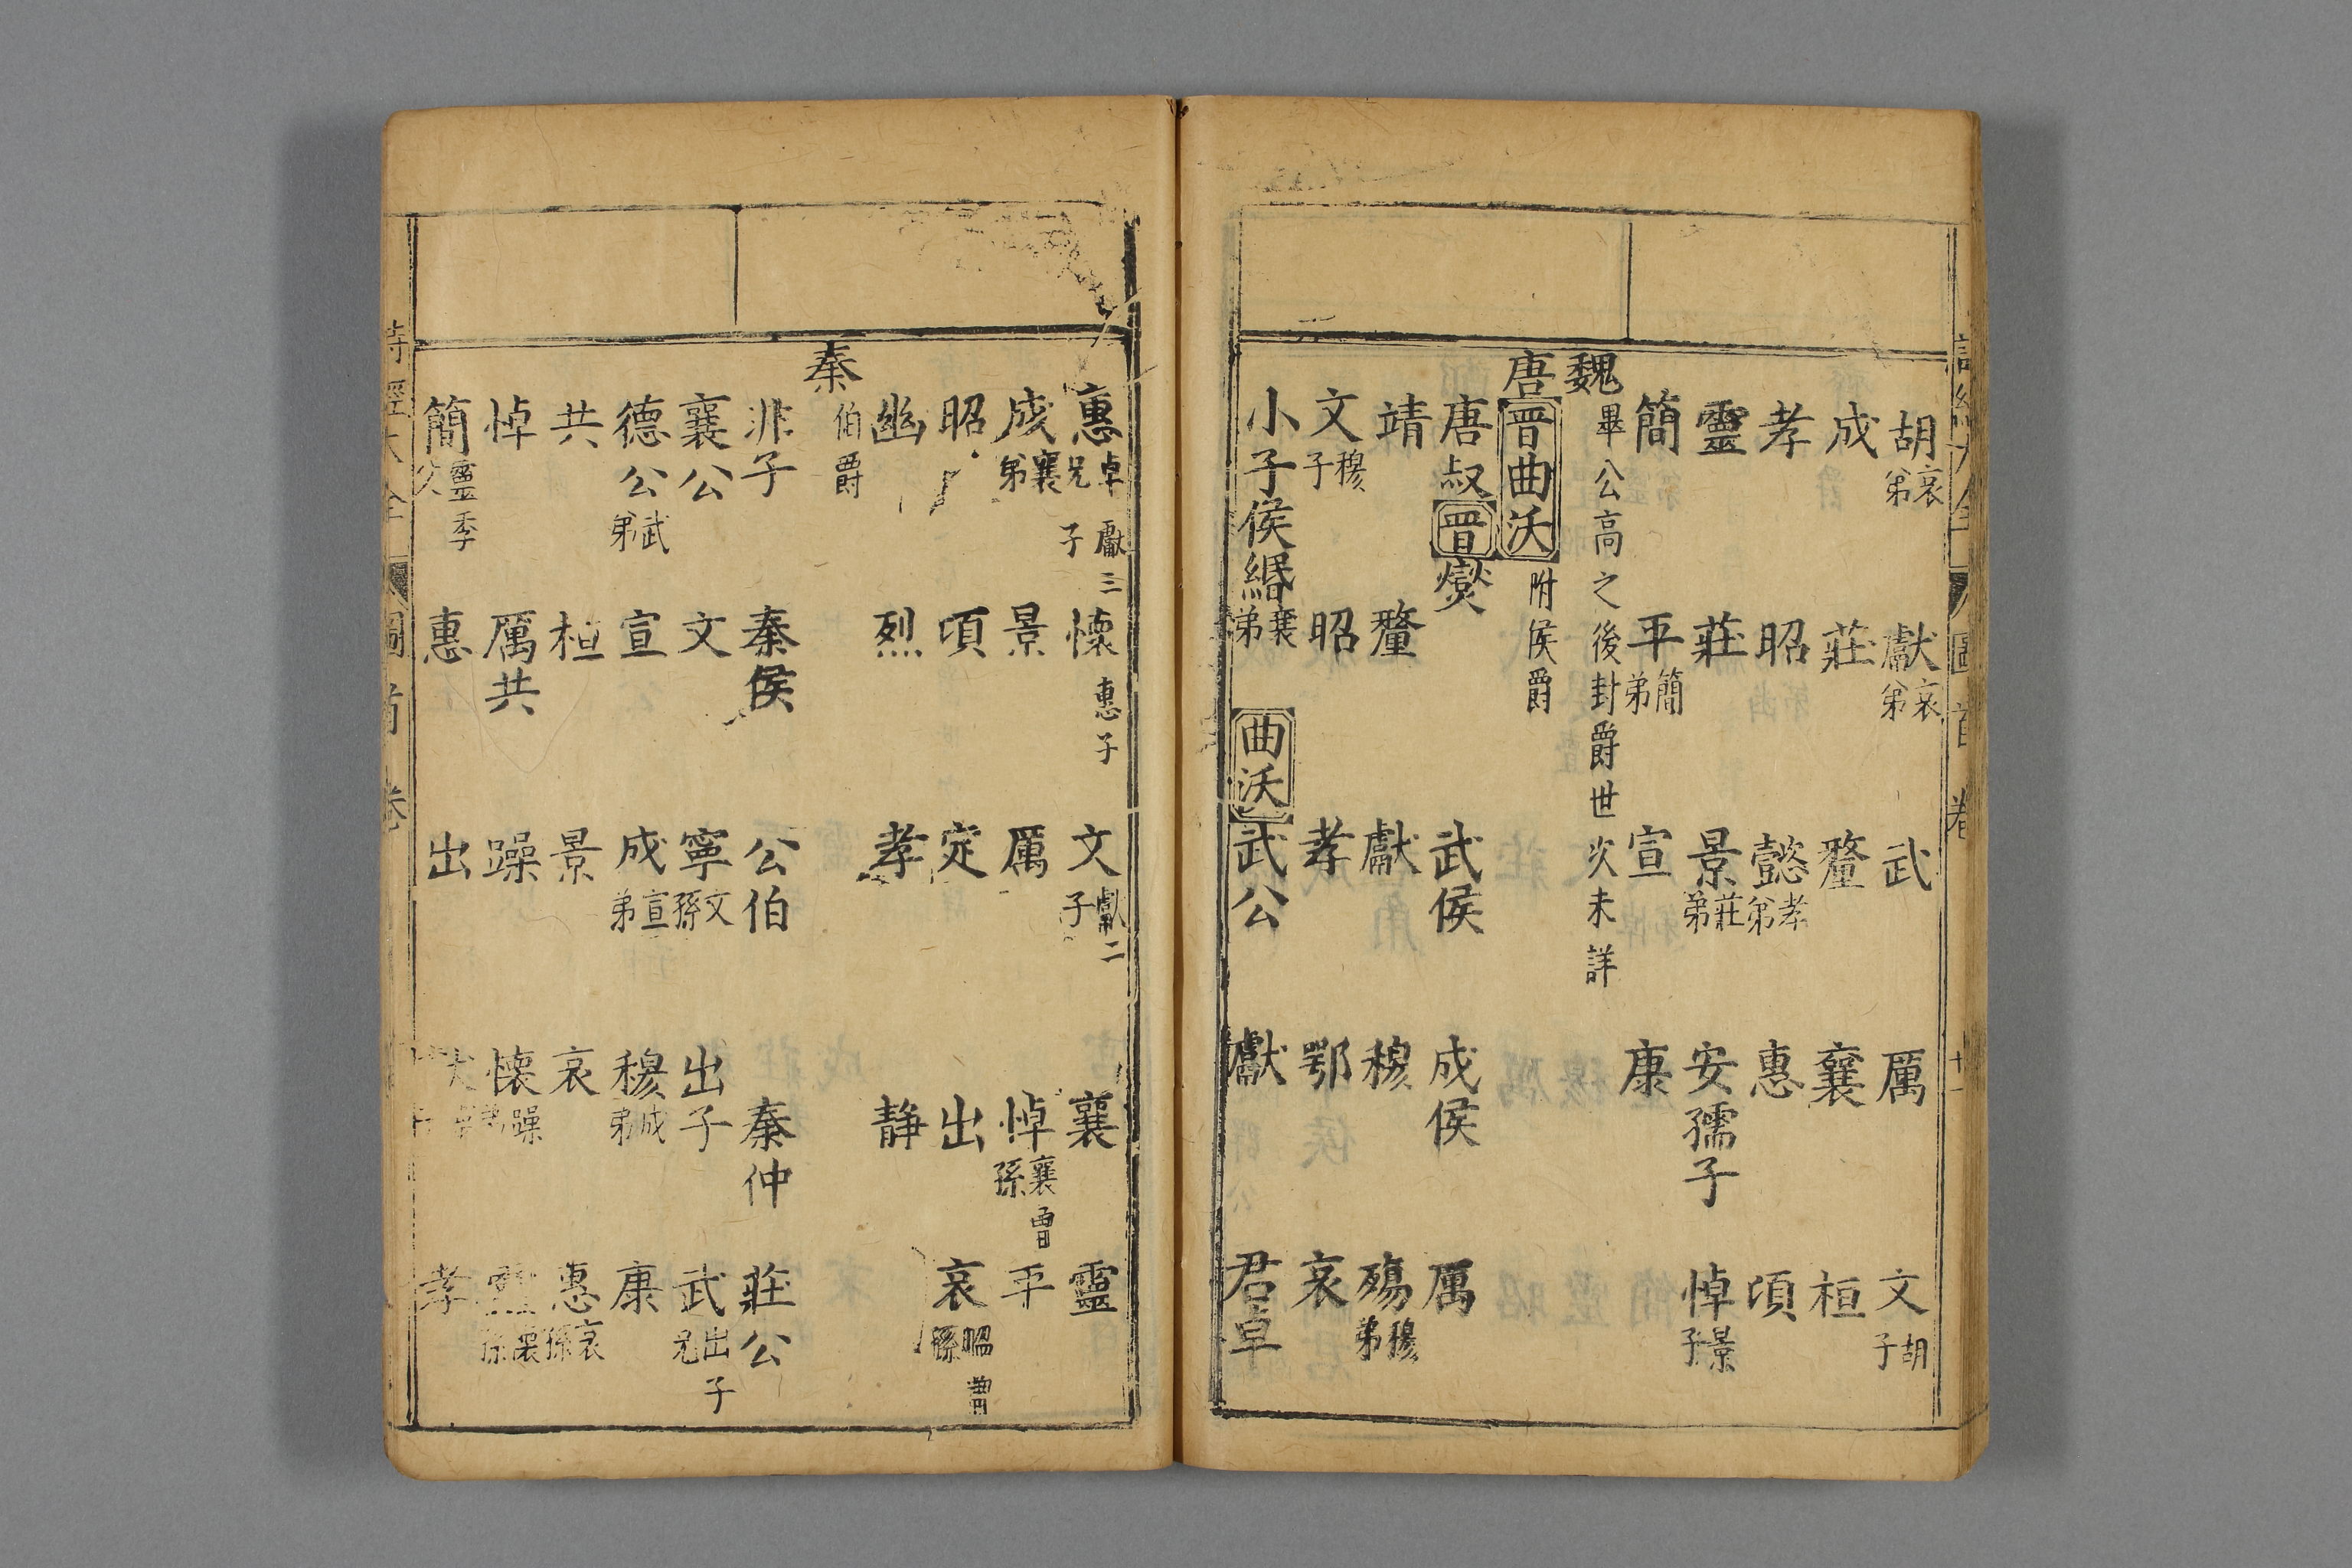 胡哀弟 獻哀弟 武 厲 文胡子
成 莊 釐 襄 桓
孝 昭 懿孝弟 惠 頃
靈 莊 景莊弟 安孺子 悼景子
簡 平簡弟 宣 康
魏畢公高之後封爵世次未詳
唐晉曲沃附侯爵
唐叔晉燮 武侯 成侯 厲
靖 釐 獻 穆 殤穆弟
文穆子 昭 孝 鄂 哀
小子侯緡襄弟 曲沃武公 獻 君卓
惠卓兄獻三子 懷惠子 文獻二子 襄 靈
成襄弟 景 厲 悼襄曾孫 平
昭 頃 定 出 哀昭曾孫
幽 烈 孝 静
秦伯爵
非子 秦侯 公伯 秦仲 莊公
襄公 文 寧文孫 出子 武出子兄
德公武弟 宣 成宣弟 穆成弟 康
共 桓 景 哀 惠哀孫
悼 厲共 躁 懷躁弟 靈懷孫
簡靈季父 惠 出 孝
詩經大全 圖 首卷